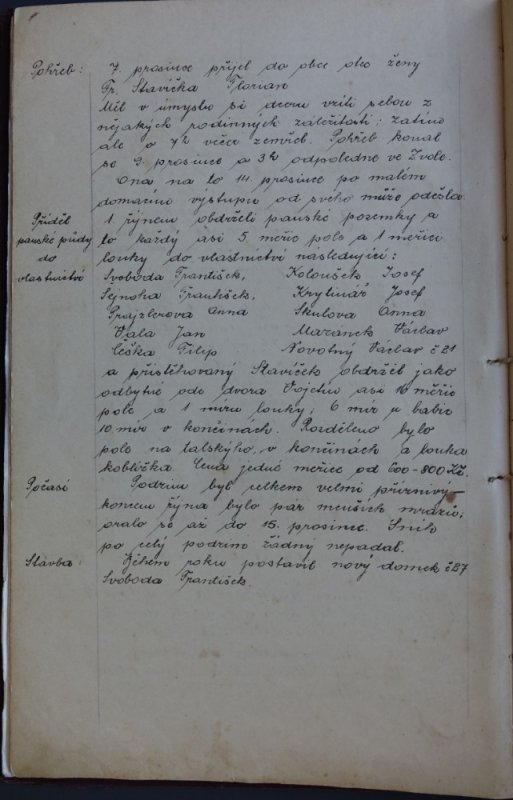 Pohřeb: 7. prosince přijel do obce otec ženy
Fr. Stavíčka Florian
Měl v úmyslu si dceru vzíti sebou z
nějakých rodinných záležitostí; zatím
ale o 7h večer zemřel. Pohřeb konal
se 9. prosince a 3h odpoledne ve Zvole.
Ona na to 14. prosince po malém
domacím výstupu od svého muže odešla
Příděl panské půdy do vlastnictví
1. října obdrželi panské pozemky a
to každý asi 5 měřic pole a 1 měřici
louky do vlastnictví nasledující:
Svoboda František, Koloušek Josef
Sejnoha František, Krytinář Josef
Prajzlerova Anna Skulova Anna
Vala Jan Mazánek Václav
Češka Filip Novotný Václav č 21
a přistěhovaný Stavíček obdržel jako
odbytné ode dvora Vojetín asi 16 měřic
pole a 1 míru louky; 6 mír u babic
10 mír v končinách. Rozděleno bylo
pole na talským, v končinách a louka
koblížka. Cena jedné měřice od 600-800 Kč.
Počasí Podzim byl celkem velmi příznivý –
koncem října bylo pár menších mrazíků,
oralo se až do 15. prosince. Sníh
po celý podzim žádný nepadal.
Stavba: Během roku postavil nový domek č 27
Svoboda František.